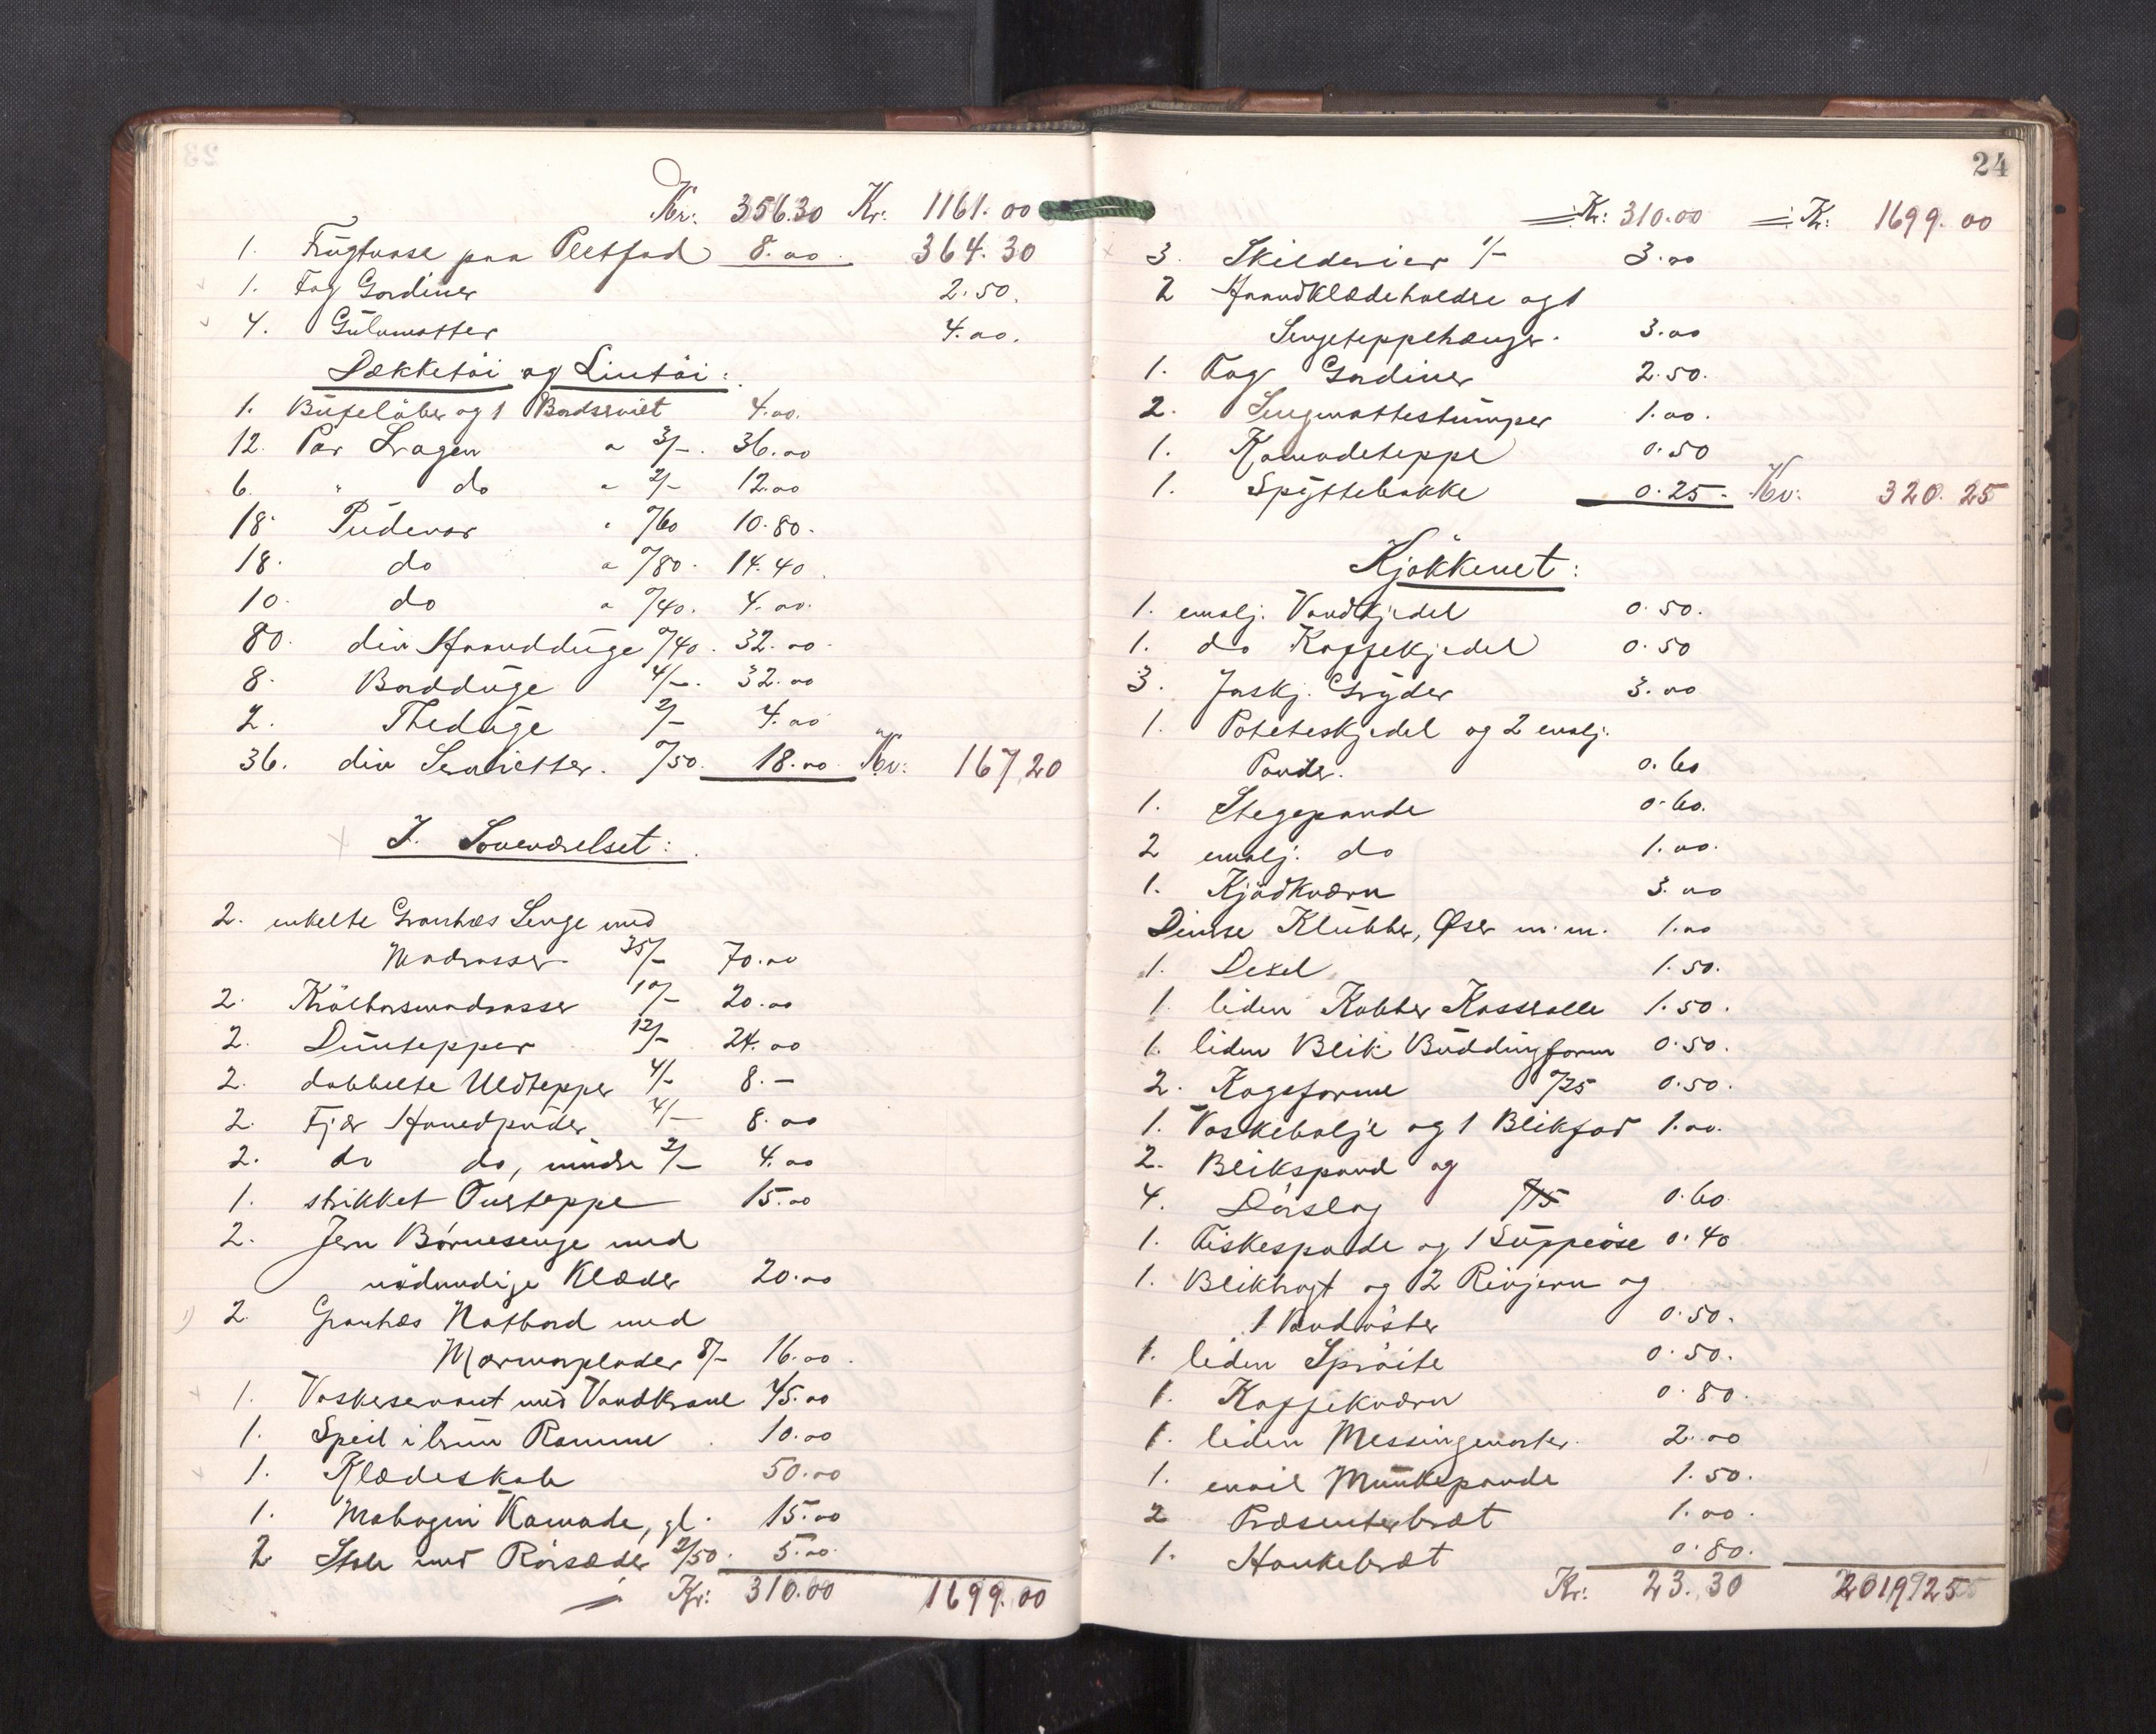 Kr: 356.30 Kr: 1161.00
1. Frugtvase paa Pletfad 8.00. 364.30
1. Fag Gardiner 2.50.
4. Gulvmatter 4.00.
Dækketøi og Lintøi:
1. Bufelöber og 1 Bordserviet 4.00.
12. Par Lagen a 3/-. 36.00
6. " do a 2/- 12.00
18. Pudevar " 0/60 10.80.
18. do a 0/80. 14.40.
10. do a 0/40. 4.00.
80. div Haandduge 0/40. 32.00.
8. Bordduge 4/-. 32.00
2. Theduge 2/- 4.00
36. div Servietter. 0/50. 18.00 Kr: 167,20
I. Soveværelset:
2. enkelte Granhæs Senge med
Madrasser 35/- 70.00
2. Krölhårsmadrasser 10/- 20.00
2. Duntepper 12/- 24.00
2. dobbelte Uldtepper 4/- 8.-
2. Fjær Hovedpuder 4/- 8.00
2. do do, mindre 2/- 4.00
1. strikket Overteppe 15.00
2. Jern Börnesenge med
nödvendige Klæder 20.00
2. Granhæs Natbord med
Marmorplader 8/- 16.00.
1. Vaskeservant med Vandkrane 45.00
1. Speil i brun Ramme. 10.00
1. Klædeskab 50.00
1. Mahogni Komode, gl. 15.00
2 Stole med Rörsæder 2/50. 5.00.
Kr: 310.00 1699.00
24
Kr: 310.00 Kr: 1699.00
3. Skilderier 1/- 3.00
2 Haandklædeholdre og 1
Sengeteppehænger. 3.00
1. Fag Gardiner 2.50.
2. Sengmattestumper 1.00.
1. Komodeteppe 0.50
1. Spyttebakke 0.25. Kr: 320.25
Kjökkenet:
1. emalj. Vandkjedel 0.50.
1. do Kaffekjedel 0.50
3. Jaskj. Gryder 3.00
1. Poteteskjedel og 2 emalj.
Pander. 0.60
1. Stegepande 0.60.
2 emalj. do 1.00.
1. Kjödkværn 3.00
Diverse Klubber, Øser m.m. 1.00
1. Dexel 1.50.
1. liden Kobber Kasserolle 1.50.
1. liden Blik Buddingform 0.50.
2. Kageforme 0/25 0.50.
1. Vaskebalje og 1 Blikfad 1.00.
2. Blikspand og
4. Dörslag 0/15 0.60
1. Fiskespade og 1 Suppeöse 0.40
1. Bliktragt og 2 Rivjern og
1 Brödrister 0.50.
1. liden Spröite 0.50.
1. Kaffekværn 0.80.
1. liden Messingmorter. 2.00
1. email Munkepande 1.50.
2 Præsenterbræt 1.00.
1. Hankebræt 0.80.
Kr: 23.30 2019,25